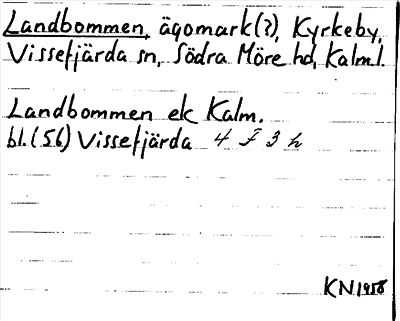 Landbommen, ägomark(?), Kyrkeby,
Vissefjärda sn, Södra Möre hd, Kalm.l.
Landbommen ek Kalm.
bl. (56) Vissefjärda 4 F 3 h
KN 1958